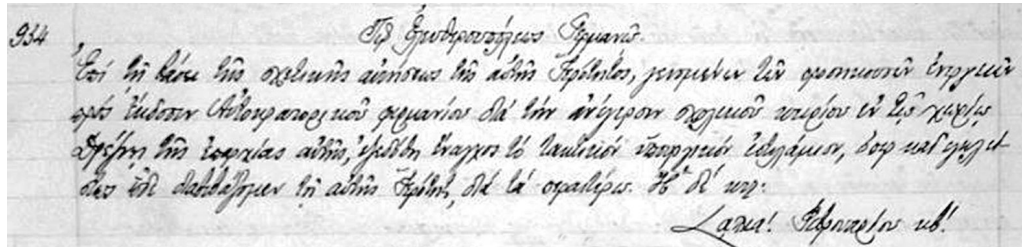 934 Τῷ Ἐλευθερουπόλεως Γερμανῷ
Ἐπὶ τῇ βάσει τῆς σχετικῆς αἰτήσεως τῆς αὐτῆς Ἱερότητος, γενομένων τῶν προσηκουσῶν ἐνεργειῶν
πρὸς ἔκδοσιν Αὐτοκρατορικοῦ φερμανίου διὰ τὴν ἀνέγερσιν σχολικοῦ κτιρίου ἐν τῷ χωρίῳ
τῆς ἐπαρχίας αὐτῆς, ἐξεδόθη ἔναγχος τὸ τακτικὸν ὑπουργικὸν ὅπερ
ὧδε διαβιβάζομεν τῇ αὐτῆς Ἱερότητι, διὰ τὰ περαιτέρω. Ἡ δὲ χαρ.
Φεβρουαρίου κβ!